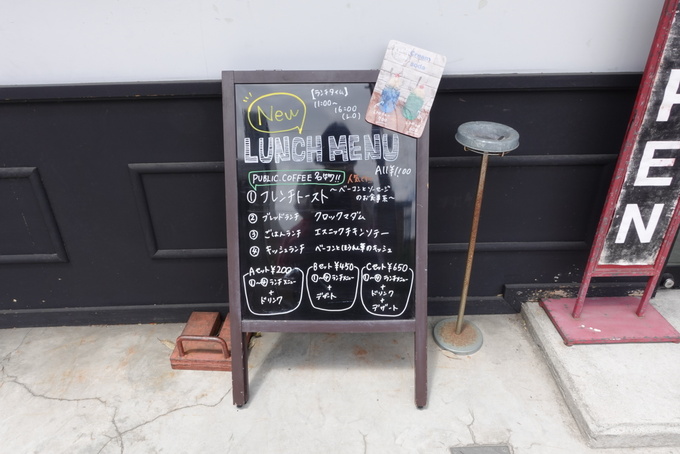 New
【ランチタイム】
11:00~
16:00
(L.O)
LUNCH MENU
All ¥1100
PUBLIC COFFEE 名物!! 人気
① フレンチトースト ~ベーコンとソーセージ
のお食事系~
② ブレッドランチ クロックマダム
③ ごはんランチ エスニックチキンソテー
④ キッシュランチ ベーコンとほうれん草のキッシュ
Aセット ¥200
①~④ ランチメニュー
+
ドリンク
Bセット ¥450
①~④ ランチメニュー
+
デザート
Cセット ¥650
①~④ ランチメニュー
+
ドリンク
+
デザート
PEN